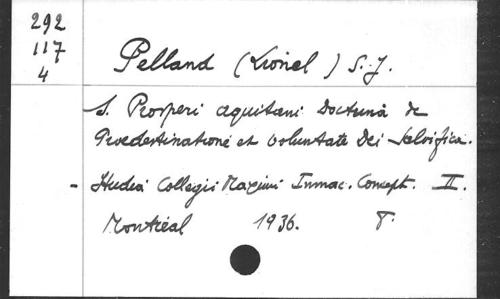 292
117
4
Pelland (Lionel) S.J.
S. Prosperi aquitani Doctrina de
Praedestinatione et voluntate Dei salvifica.
- Studia Collegii Maximi Immac. Concept. II.
Montréal 1936. 8°